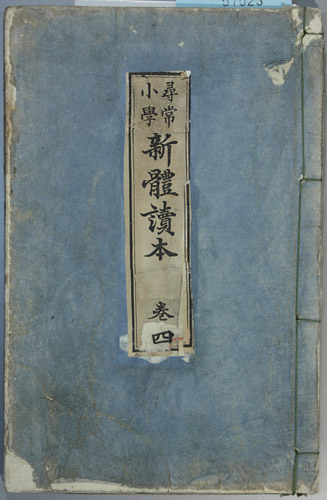 尋常
小學
新體讀本
卷四